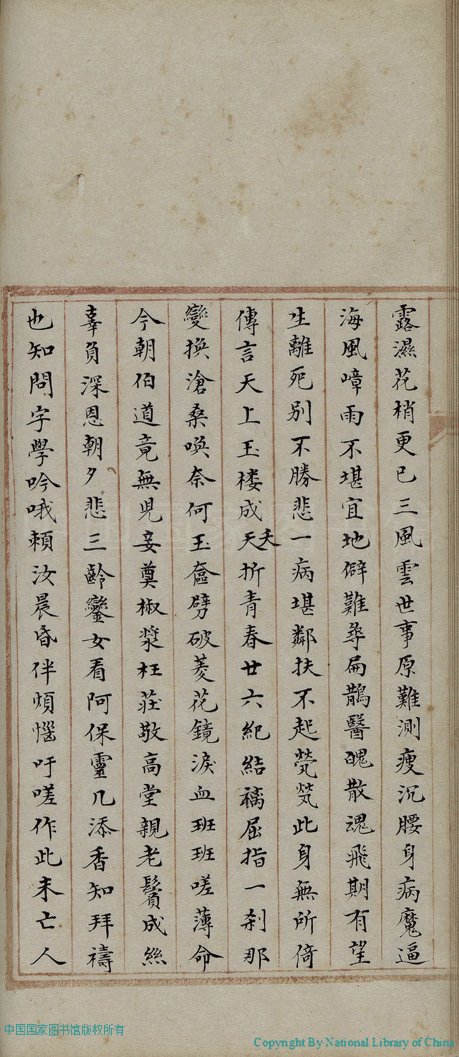 露濕花梢更已三風雲世事原難測瘦沉腰身病魔逼
海風嶂雨不堪宜地僻難尋扁鵲醫魄散魂飛期有望
生離死別不勝悲一病堪鄰扶不起煢煢此身無所倚
傳言天上玉楼成天夭折青春廿六紀結褵屈指一刹那
變換滄桑喚奈何玉奩劈破菱花鏡淚血班班嗟薄命
今朝伯道竟無児妾奠椒漿枉莊敬高堂親老鬢成絲
辜負深恩朝夕悲三齡孿女看阿保靈几添香知拜禱
也知問字學吟哦賴汝晨昏伴煩惱吁嗟作此未亡人
中国国家图书馆版权所有
Copyright By National Library of China